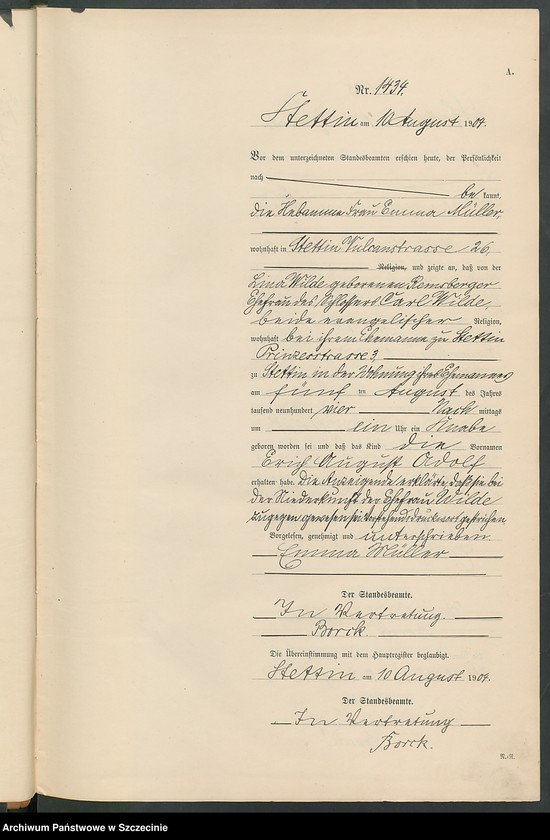 A.
Nr. 1434.
Stettin am 10 August 1904.
Vor dem unterzeichneten Standesbeamten erschien heute, der Persönlichkeit
nach
be kannt,
die Hebamme Frau Emma Müller
wohnhaft in Stettin Vulcanstrasse 26,
Religion, und zeigte an, daß von der
Lina Wilde geborenen Remsberger
Ehefrau des Schlossers Carl Wilde,
beide evangelischer Religion,
wohnhaft bei ihrem Ehemanne zu Stettin
Prinzessstrasse 3,
zu Stettin in der Wohnung ihres Ehemannes
am fünf ten August des Jahres
tausend neunhundert vier Nach mittags
um ein Uhr ein Knabe
geboren worden sei und daß das Kind die Vornamen
Erich August Adolf
erhalten habe. Die Anzeigende erklärte, daß sie bei
der Niederkunft der Ehefrau Wilde
zugegen gewesen sei. Vorstehend Druckwort gestrichen
Vorgelesen, genehmigt und unterschrieben
Emma Müller
Der Standesbeamte.
In Vertretung.
Borck.
Die Übereinstimmung mit dem Hauptregister beglaubigt.
Stettin am 10 August 1904.
Der Standesbeamte.
In Vertretung
Borck.
Archiwum Państwowe w Szczecinie